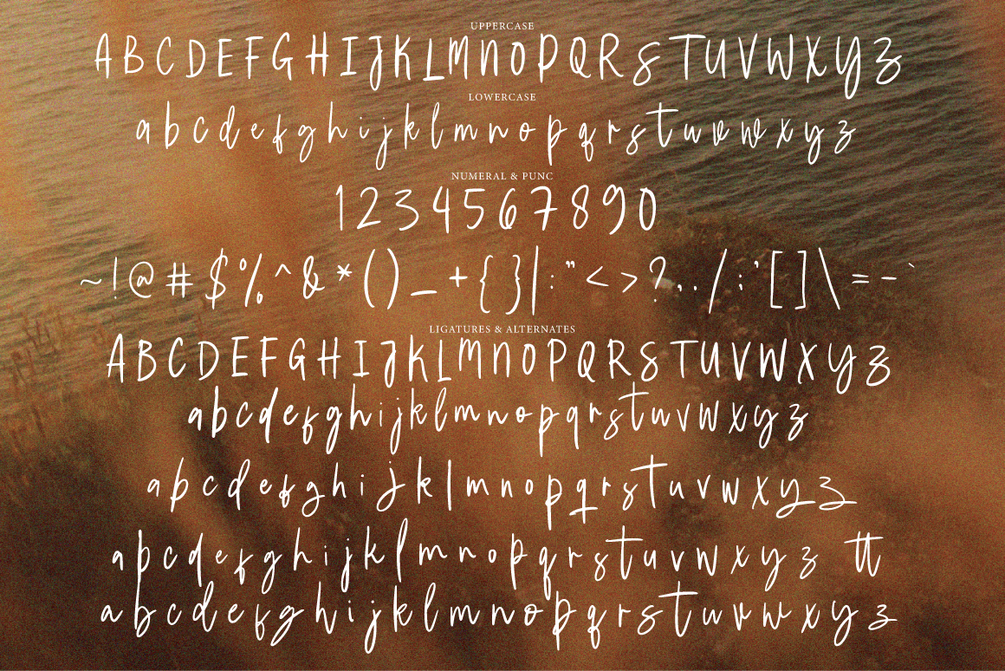 UPPERCASE
A B C D E F G H I J K L M N O P Q R S T U V W X Y Z
LOWERCASE
a b c d e f g h i j k l m n o p q r s t u v w x y z
NUMERAL & PUNC
1 2 3 4 5 6 7 8 9 0
~ ! @ # $ % ^ & * ( ) _ + { } | : " < > ? , . / ; ' [ ] \ = - `
LIGATURES & ALTERNATES
A B C D E F G H I J K L M N O P Q R S T U V W X Y Z
a b c d e f g h i j k l m n o p q r s t u v w x y z
a b c d e f g h i j k l m n o p q r s t u v w x y z
a b c d e f g h i j k l m n o p q r s t u v w x y z tt
a b c d e f g h i j k l m n o p q r s t u v w x y z